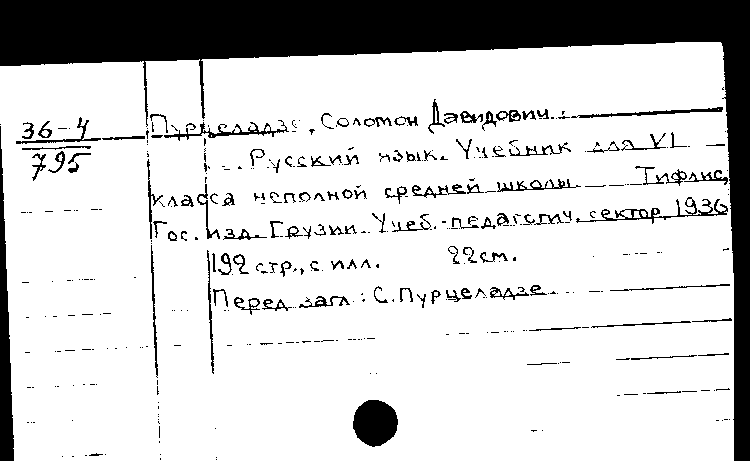 36-4
795
Пурцеладзе, Соломон Давидович.
... Русский язык. Учебник для VI
класса неполной средней школы. Тифлис,
Гос. изд. Грузии. Учеб.-педагогич. сектор, 1936
192 стр., с илл. 22 см.
Перед загл: С. Пурцеладзе.